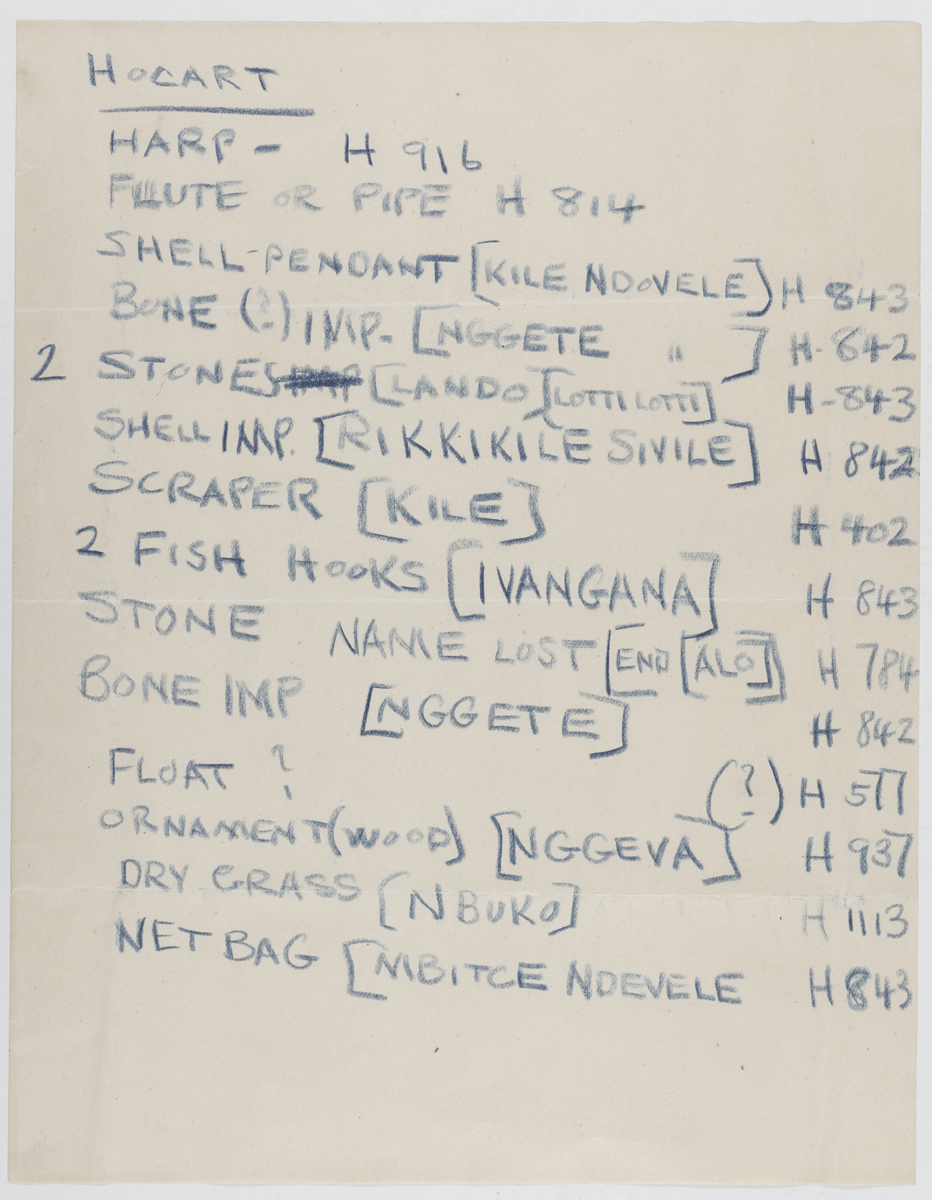 HOCART
HARP - H 916
FLUTE OR PIPE H 814
SHELL-PENDANT [KILE NDOVELE] H 843
BONE (?) IMP. [NGGETE " ] H-842
2 STONES [LANDO [LOTTILOTTI] H-843
SHELL IMP. [RIKKIKILE SIVILE] H 842
SCRAPER [KILE] H 402
2 FISH HOOKS [IVANGANA] H 843
STONE NAME LOST [END [ALO]] H 784
BONE IMP [NGGETE] H 842
FLOAT ? (?) H 577
ORNAMENT (WOOD) [NGGEVA] H 937
DRY GRASS [NBUKO] H 1113
NET BAG [MBITCE NDEVELE H 843